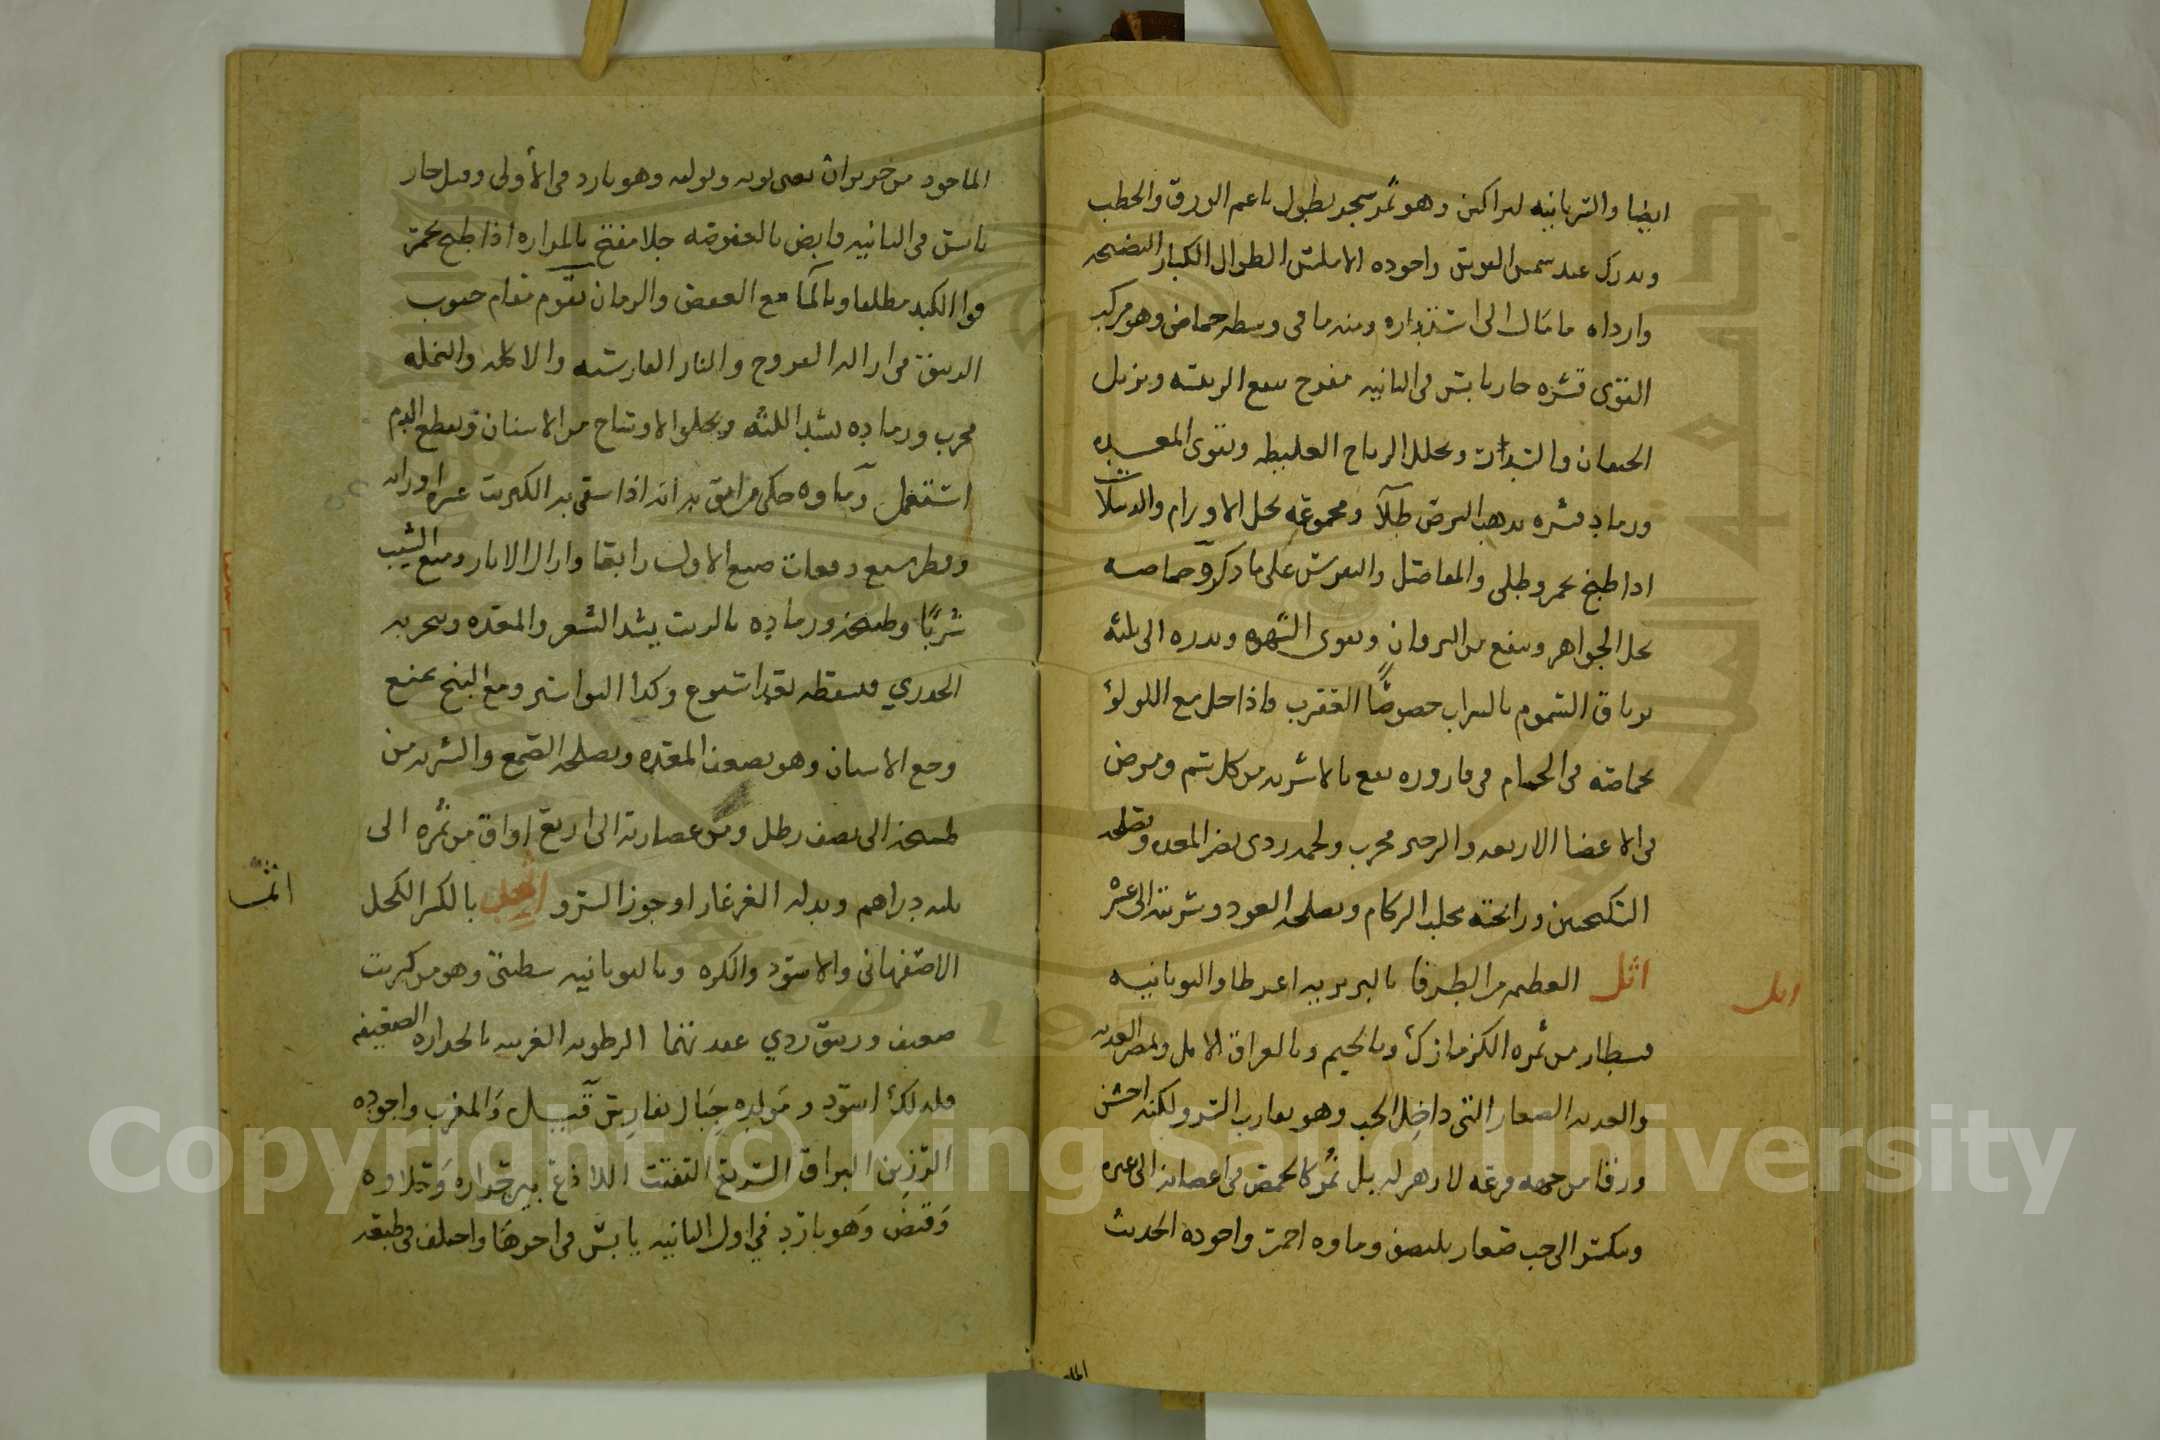 ايضا والسريانية لتراكين وهو ثمر شجر يطول ناعم الورق والحطب
ويدرك عند شمس القوس واجوده الاملس الطوال الكبار النضيجه
وارداه ما مال الى استداره ومنه ما في وسطه حماض وهو مركب
القوى قشره حار يابس في الثانيه مفرح يمنع الريقه ويزيل
الخفقان والسدات ويحلل الرياح الغليظه ويقوى المعده
ورماد قشره يذهب البرص طلآ ومجموعه يحل الاورام والدبيلات
اذا طبخ بخمر وطلى والمفاصل والنقرس على ما ذكر وحماضه
يحل الجواهر وينفع من اليرقان ويقوى الشهوه وبذره الى ثلثه
ترياق السموم بالشراب خصوصًا العقرب واذا حل مع اللولؤ
بحماضه في الحمام في قاروره نفع بالاشربه من كل سم ومرض
فى الاعضا الاربعه والزحير مجرب ولحمه ردى يضر المعده ويصلحه
السكنجبين ورائحته يجلب الزكام ويصلحه العود وشربته الى عشره
اثل العظيم من الطرفا بالبربريه اعرطا واليونانيه
قسطار من ثمره الكزمازك وبالجيم وبالعراق الابل وبمصر العذبه
والعذبه الصغار التى داخل الحب وهو يقارب السرو لكنه اخشن
ورقا من جهه فرعه لا زهر له بل ثمر كالحمص في اغصانه الى غبره
ويكسر الى حب صغار ملتصق وماوه احمر واجوده الحديث
اثل
الماخود من حزيران بعد بونه وبوليه وهو بارد فى الاولى وقيل حار
يابس فى الثانيه قابض بالعفوصه جلا مفتح بالمراره اذا طبخ بخمر
قوا الكبد مطلقا وبالمآ مع العفص والرمان يقوم مقام حبوب
الزيبق فى ازاله القروح والنار الفارسيه والاكله والنمله
مجرب ورماده يشد اللثه ويجلو الاوساخ من الاسنان ويقطع الدم
استعمل وماوه حكى من اثق به انه اذا سقى به الكبريت عشره اوزانه
وقطر سبع دفعات صبغ الاول رابعا وازال الاثار ومنع الشيب
شربًا وطبيخه ورماده بالزيت يشد الشعر والمقعده وينخر به
الجدري فيسقط بعد اسبوع وكذا البواسير ومع البنج يمنع
وجع الاسنان وهو يضعف المعده ويصلحه الصمغ والشربه من
طبيخه الى نصف رطل ومن عصارته الى اربع اواق من ثمره الى
ثلثه دراهم وبدله الغرغار او جوز السرو اثمد بالكسر الكحل
الاصفهانى والاسود والكره وباليونانيه سطينى وهو من كبريت
ضعيف وزيبق ردي عقدتهما الرطوبه الغريبه بالحراره الضعيفه
فلذلك اسود ومولده جبال بفارس قيل والمغرب واجوده
الرزين البراق السريع التفتت اللذاع بين حراره وحلاوه
وقبض وهو بارد في اول الثانيه يابس فى اخرها واختلف فى طبعه